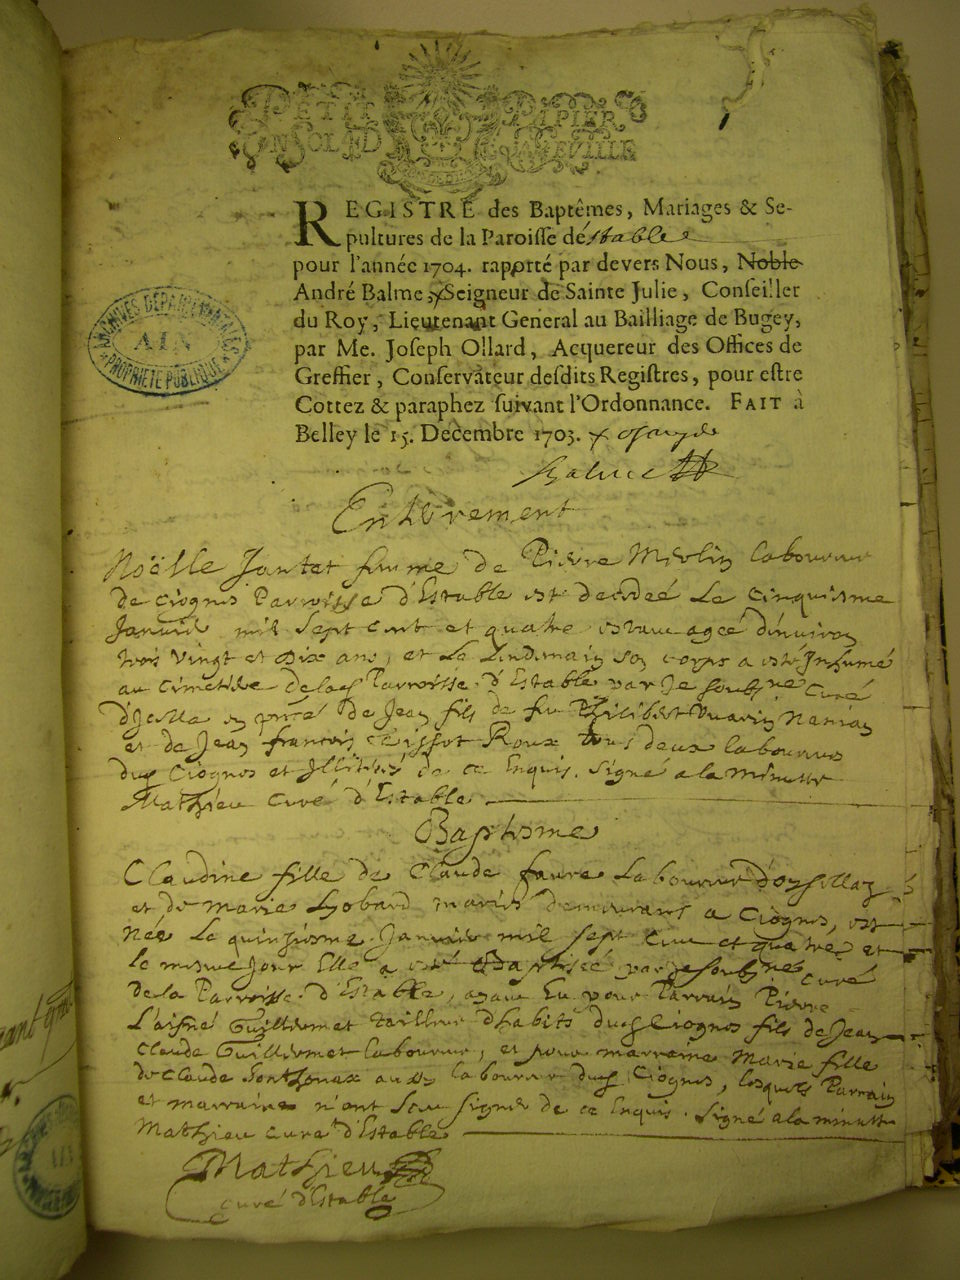 PETIT PAPIER
REGISTRE des Baptêmes, Mariages & Se-
pultures de la Paroisse déstable
pour l'année 1704. rapporté par devers Nous, Noble
André Balme, Seigneur de Sainte Julie, Conseiller
du Roy, Lieutenant General au Bailliage de Bugey,
par Me. Joseph Ollard, Acquereur des Offices de
Greffier, Conservateur desdits Registres, pour estre
Cottez & paraphez suivant l'Ordonnance. FAIT à
Belley le 15. Decembre 1703.
ARCHIVES DÉPARTEMENTALES
AIN
PROPRIÉTÉ PUBLIQUE
Enterrement
Noëlle Jantet femme de Pierre Merlin laboureur
de Ciognos Parroisse d'Estable est decedeé Le Cinquisme
Janvier mil sept cent et quatre estant ageé d'environ
trois vingt et dix ans, et Le Lendemain son corps a esté Inhumé
au cimetiere de la Parroisse d'Estable par Je soubsne Curé
de Jean fils de feu Philibert
et de Jean francois Tissot Roux tous deux laboureurs
Ciognos et Illitteré de ce Enquis. Signé a la Minutte
Mathieu curé d'Estable
Baptesme
Claudine fille de Claude faure Laboureur
et de Marie Lyobard mariés demeurans a Ciognos, est
Neé Le quinziesme Janvier mil sept cent et quatre et
le mesme Jour Elle a esté Baptiseé par Je soubsne curé
de la Parroisse d'Estable, ayant Eu pour Parrain Pierre
L'aisné Guillermet tailleur d'habits Ciognos fils de Jean
Claude Guillermet laboureur, et pour marraine Marie fille
de Claude aussy laboureur Ciognos, lesquels Parrain
et marraine n'ont sceu signer de ce Enquis. Signé a la minutte
Mathieu curé d'Estable
Mathieu
curé d'Estable